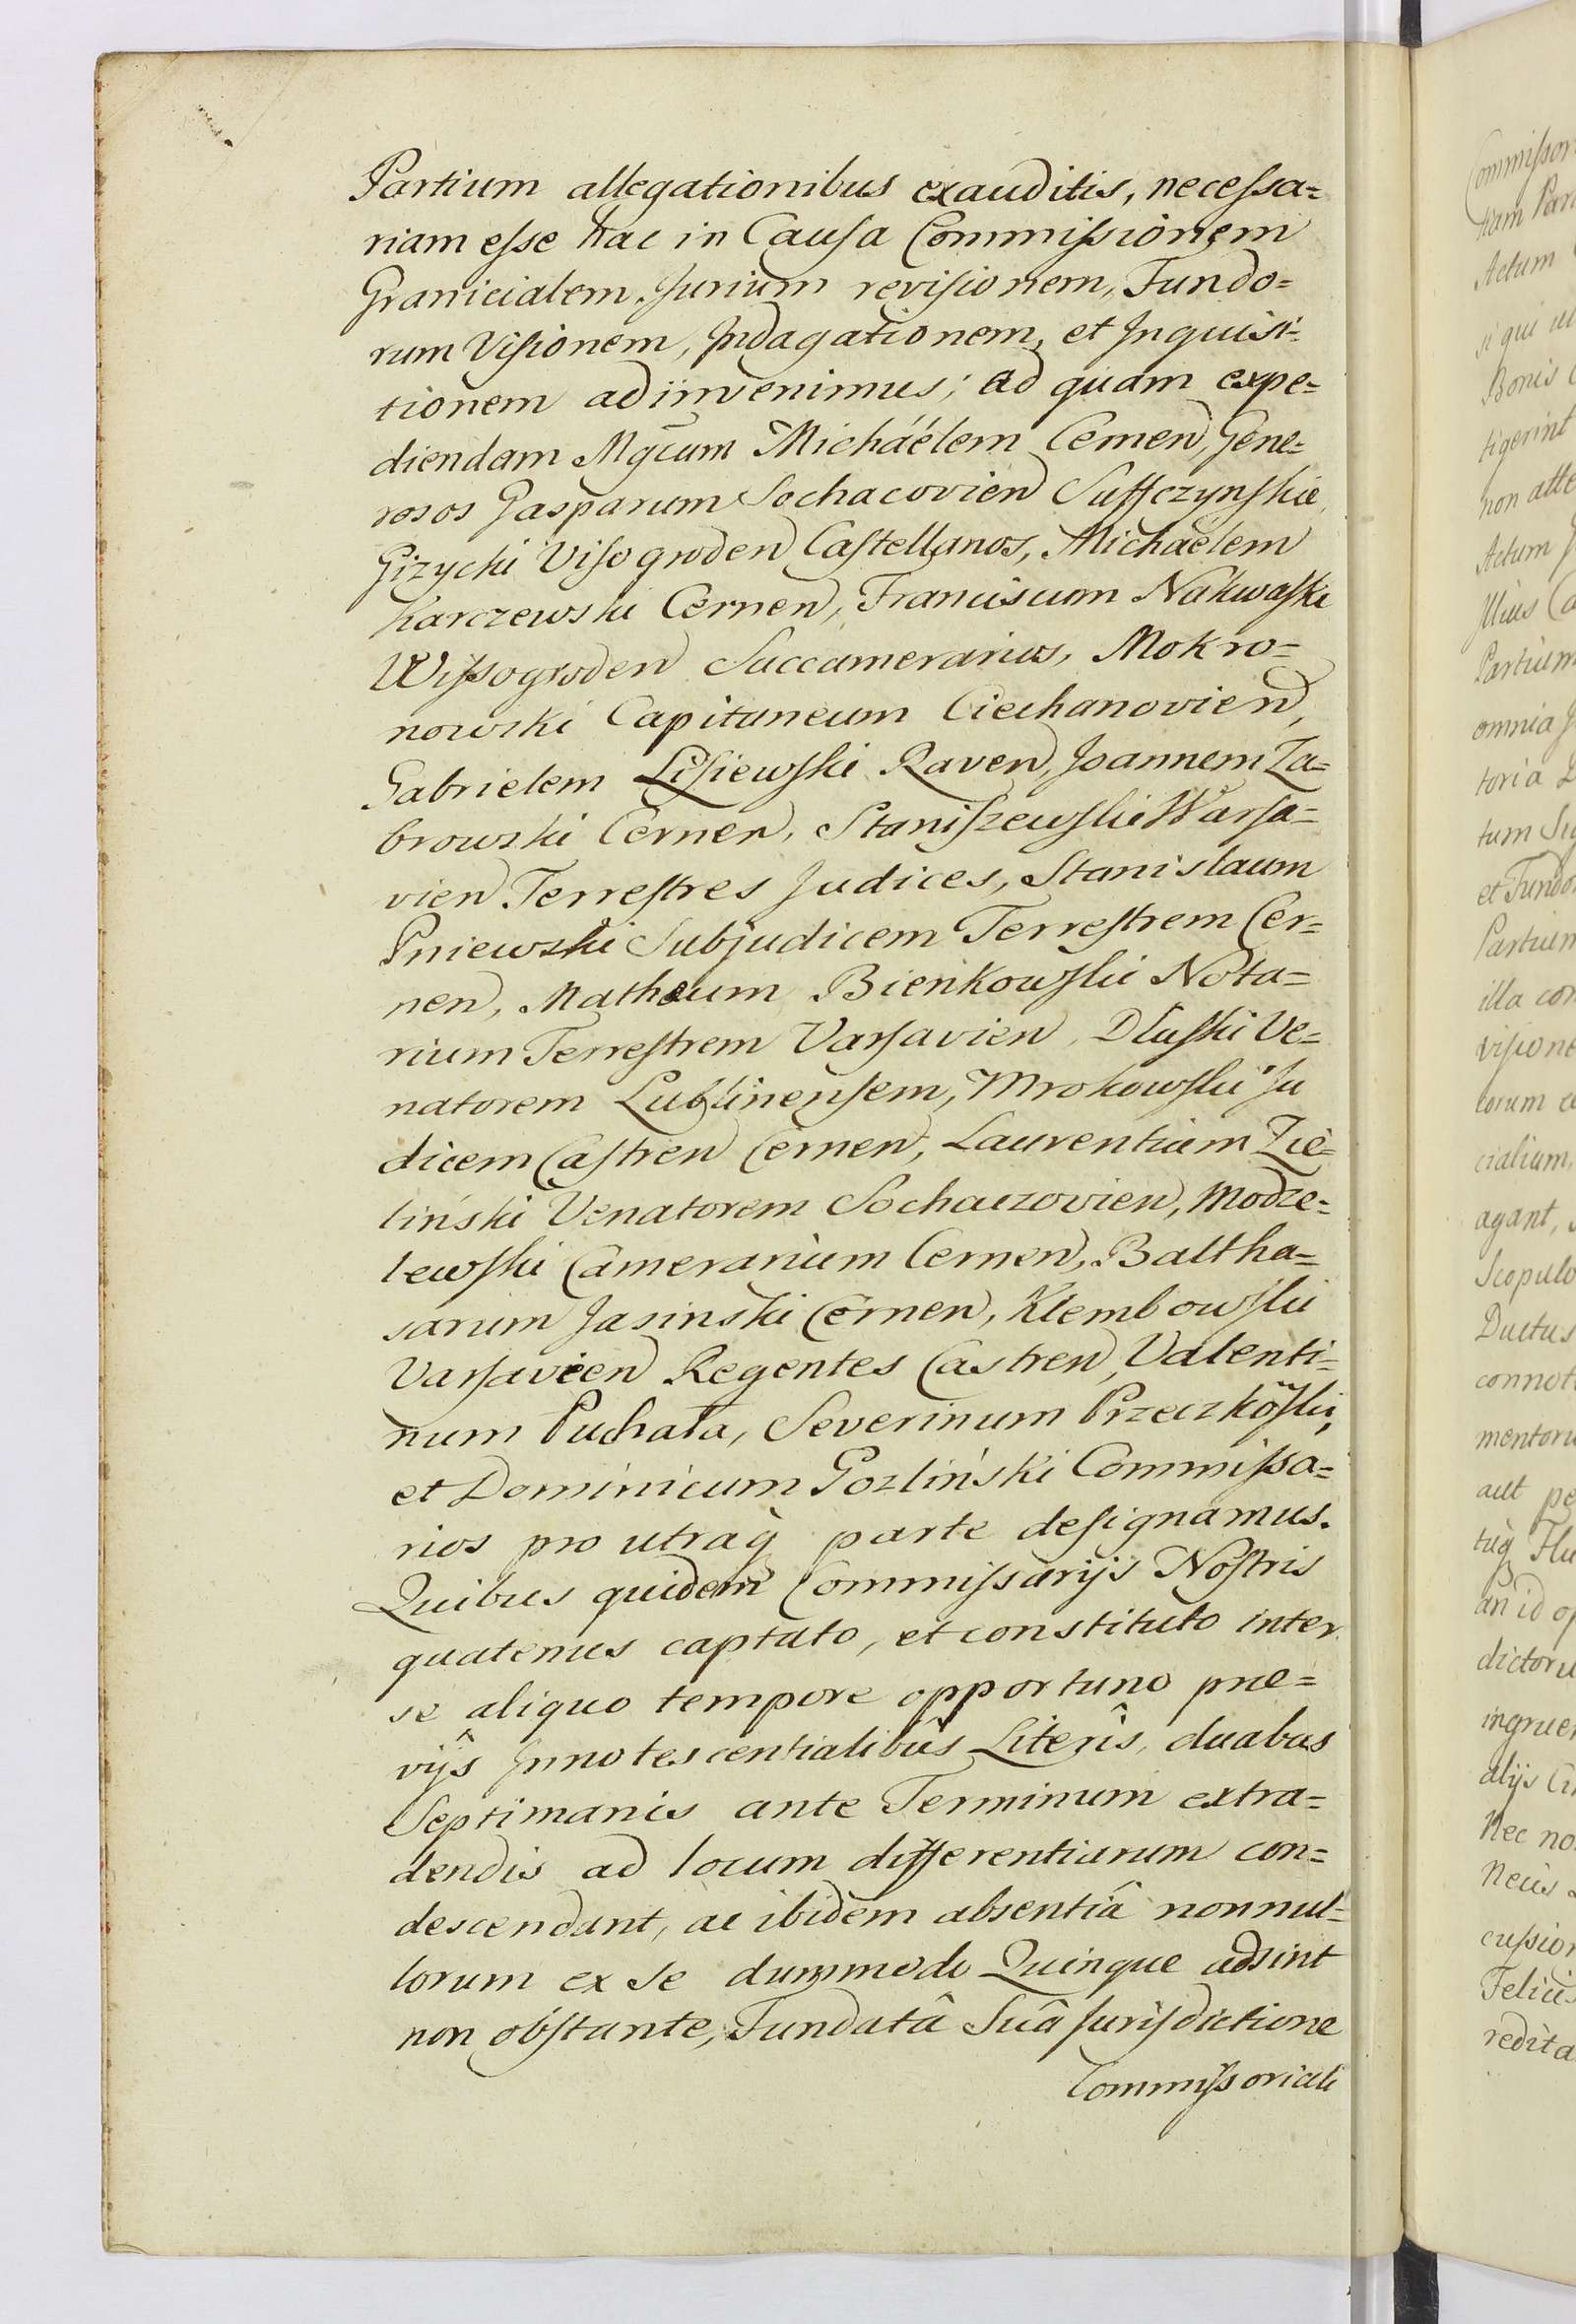 Partium allegationibus exauditis, necessa=
riam esse hac in Causa Commissionem
Granicialem, Jurium revisionem, Fundo=
rum Visionem, Indagationem, et Inquisi=
tionem adinvenimus; ad quam expe=
diendam Mgcum Michaélem Cernen, Gene=
rosos Gasparum Sochacovien Suffczynskie,
Gizycki Visogroden Castellanos, Michaélem
Karczewski Cernen, Franciscum Nakwaski
Wissogroden Succamerarios, Mokro=
nowski Capitaneum Ciechanovien,
Gabrielem Lisiewski Raven, Joannem Za=
browski Cernen, Staniszewski Warsa=
vien Terrestres Judices, Stanislaum
Pniewski Subjudicem Terrestrem Cer=
nen, Matheum Bienkowski Nota=
rium Terrestrem Varsavien, Dłuski Ve=
natorem Lublinensem, Mrokowski Ju
dicem Castren Cernen, Laurentium Zie=
linski Venatorem Sochaczovien, Modze=
lewski Camerarium Cernen, Baltha=
sarum Jasinski Cernen, Klembowski
Varsavien Regentes Castren, Valenti=
num Puchała, Severinum Przeczkoski,
et Dominicum Gozlinski Commissa=
rios pro utraq parte designamus.
Quibus quidem Commissarijs Nostris
quatenus captato, et constituto inter
se aliquo tempore opportuno præ=
vijs Innotescentialibûs Literîs, duabus
Septimanis ante Terminum extra=
dendis ad locum differentiarum con=
descendant, ac ibidem absentiâ nonnul=
lorum ex se dummodo Quinque adsint
non obstante, Fundatâ Suâ Jurisdictione
Commissoriali
Commissori
Actum
si qui
Bonis
tigerint
non atte
Actum
Illius
Partium
omnia
toria
tum
et Fundo
Partium
illa con
visione
cialium,
agant,
Scopulo
Ductus
connot
mentoru
aut pe
an id op
dictoru
ingruen
alijs
Nec no
cussion
Felicis
redita